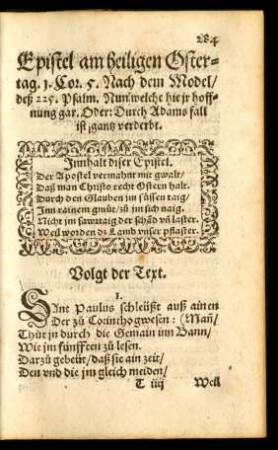 284
Epistel am heiligen Oster-
tag. 1. Cor. 5. Nach dem Model/
deß 225. Psalm. Nun welche hie jr hoff-
nung gar. Oder: Durch Adams fall
ist gantz verderbt.
Innhalt diser Epistel.
Der Apostel vermahnt mit gwalt/
Daß man Christo recht Ostern halt.
Durch den Glauben im süssen taig/
Inn rainem gmüt/ zů im sich naig.
Nicht im sawrtaig der schäd vñ laster.
Weil worden dz Lamb vnser pflaster.
Volgt der Text.
1.
SAnt Paulus schleüßt auß ainen
Der zů Corintho gwesen: (Mañ/
Thůt jn durch die Gemain inn Bann/
Wie im fünfften zů lesen.
Darzů gebeüt/ daß sie ain zeit/
Den vnd die jm gleich meiden/
T iiij Weil